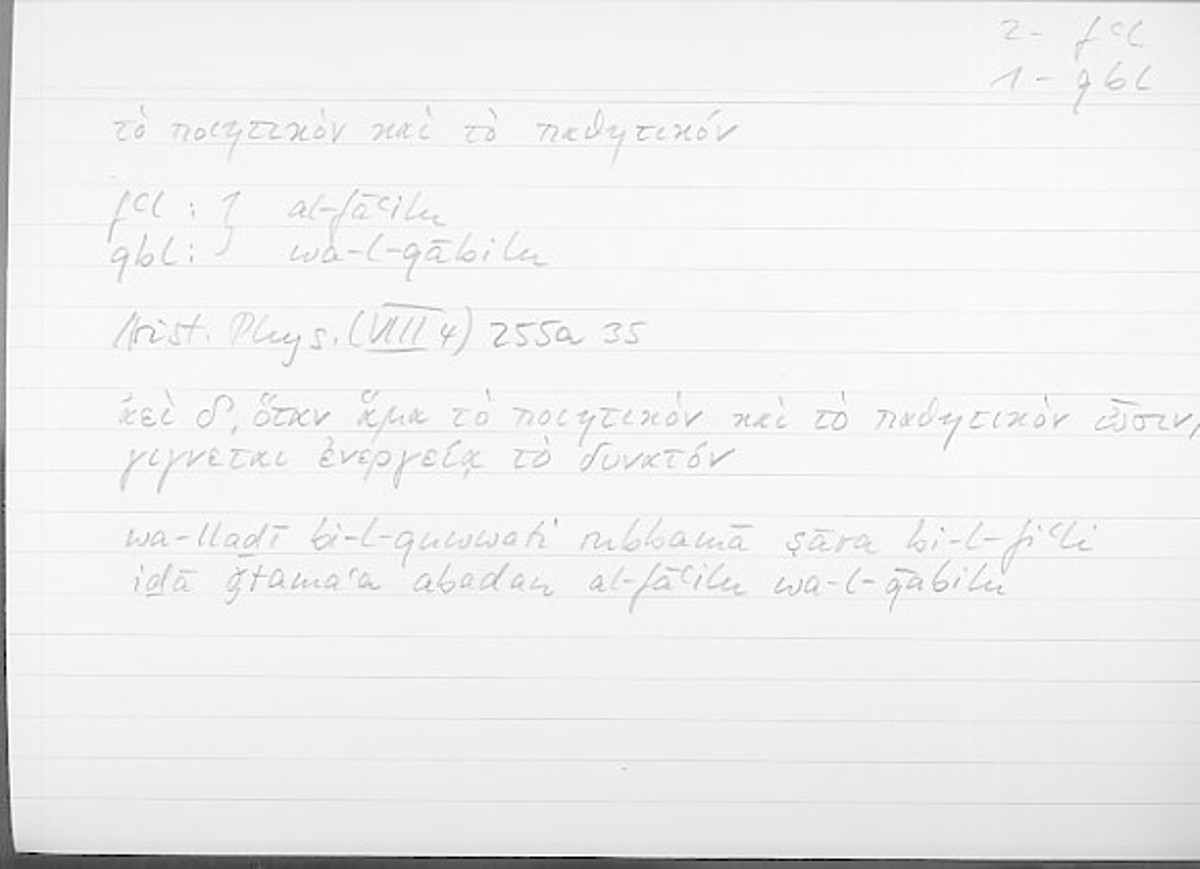 2- fʿl
1- qbl
τὸ ποιητικὸν καὶ τὸ παθητικόν
fʿl : } al-fāʿilu
qbl : } wa-l-qābilu
Arist. Phys. (VIII 4) 255a 35
ἀεὶ δ', ὅταν ἅμα τὸ ποιητικὸν καὶ τὸ παθητικὸν ὦσιν,
γιγνεται ἐνεργείᾳ τὸ δυνατόν
wa-lladī bi-l-quwwati rubbamā ṣāra bi-l-fiʿli
iḏā ǧtamaʿa abadan al-fāʿilu wa-l-qābilu